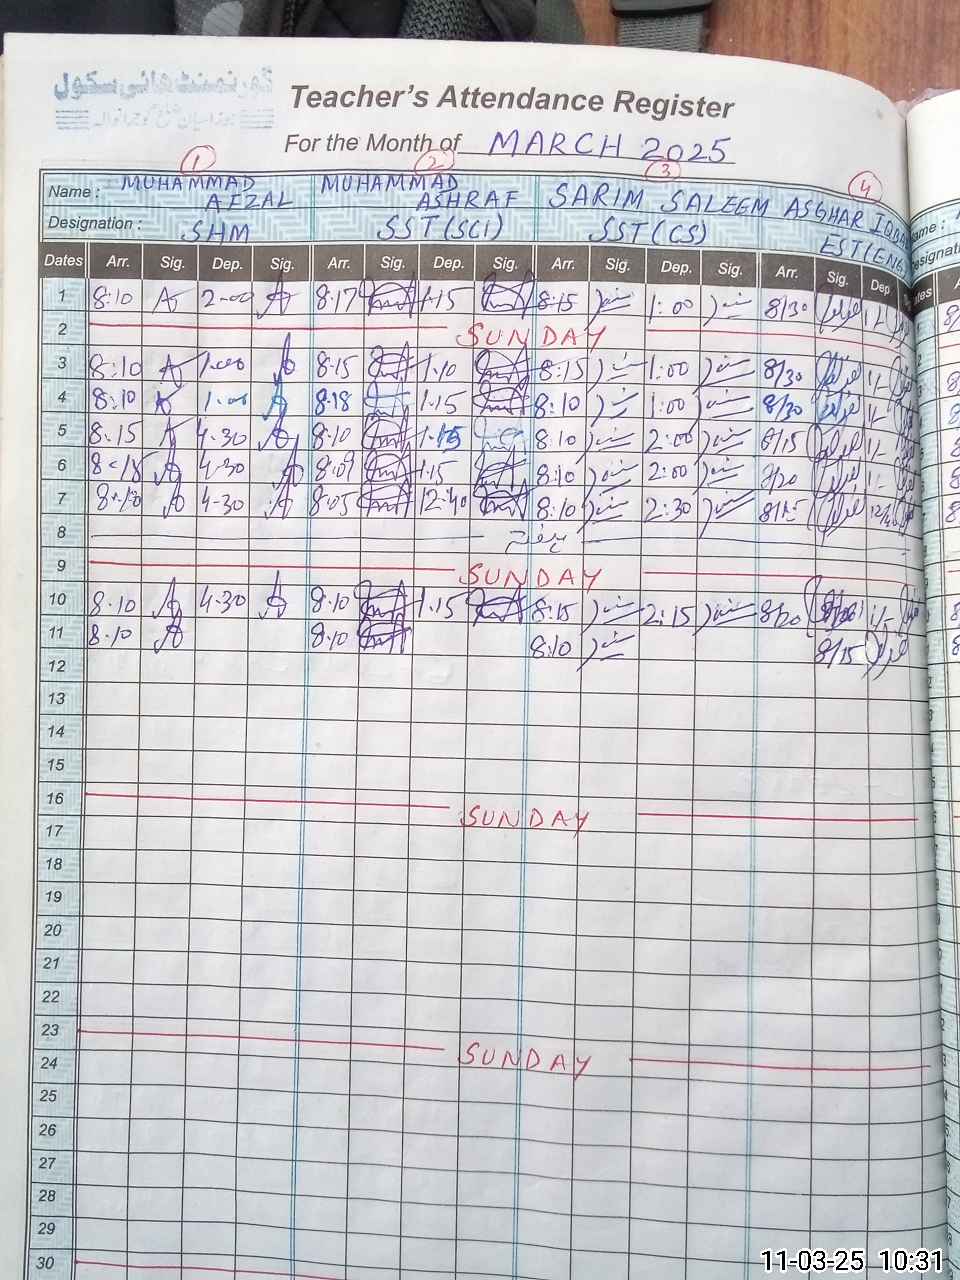 گورنمنٹ ھائی سکول
Teacher's Attendance Register
For the Month of MARCH 2025
1 2 3 4
Name : MUHAMMAD AFZAL MUHAMMAD ASHRAF SARIM SALEEM ASGHAR IQBA
Designation : SHM SST(SCI) SST(CS) EST(ENG
Dates Arr. Sig. Dep. Sig. Arr. Sig. Dep. Sig. Arr. Sig. Dep. Sig. Arr. Sig. Dep
1 8:10 2-00 8:17 1:15 8:15 1:00 8/30
2 SUNDAY
3 8:10 1:00 8:15 1:10 8:15 1:00 8/30
4 8:10 1:00 8:18 1:15 8:10 1:00 8/30
5 8:15 4-30 8:10 1:15 8:10 2:00 8/15
6 4-30 8:09 1:15 8:10 2:00 8/20
7 4-30 8:05 12:40 8:10 2:30
8
9 SUNDAY
10 8:10 4-30 8:10 1:15 8:15 2:15 8/20
11 8:10 8:10 8:10 8/15
12
13
14
15
16 SUNDAY
17
18
19
20
21
22
23 SUNDAY
24
25
26
27
28
29
30
11-03-25 10:31